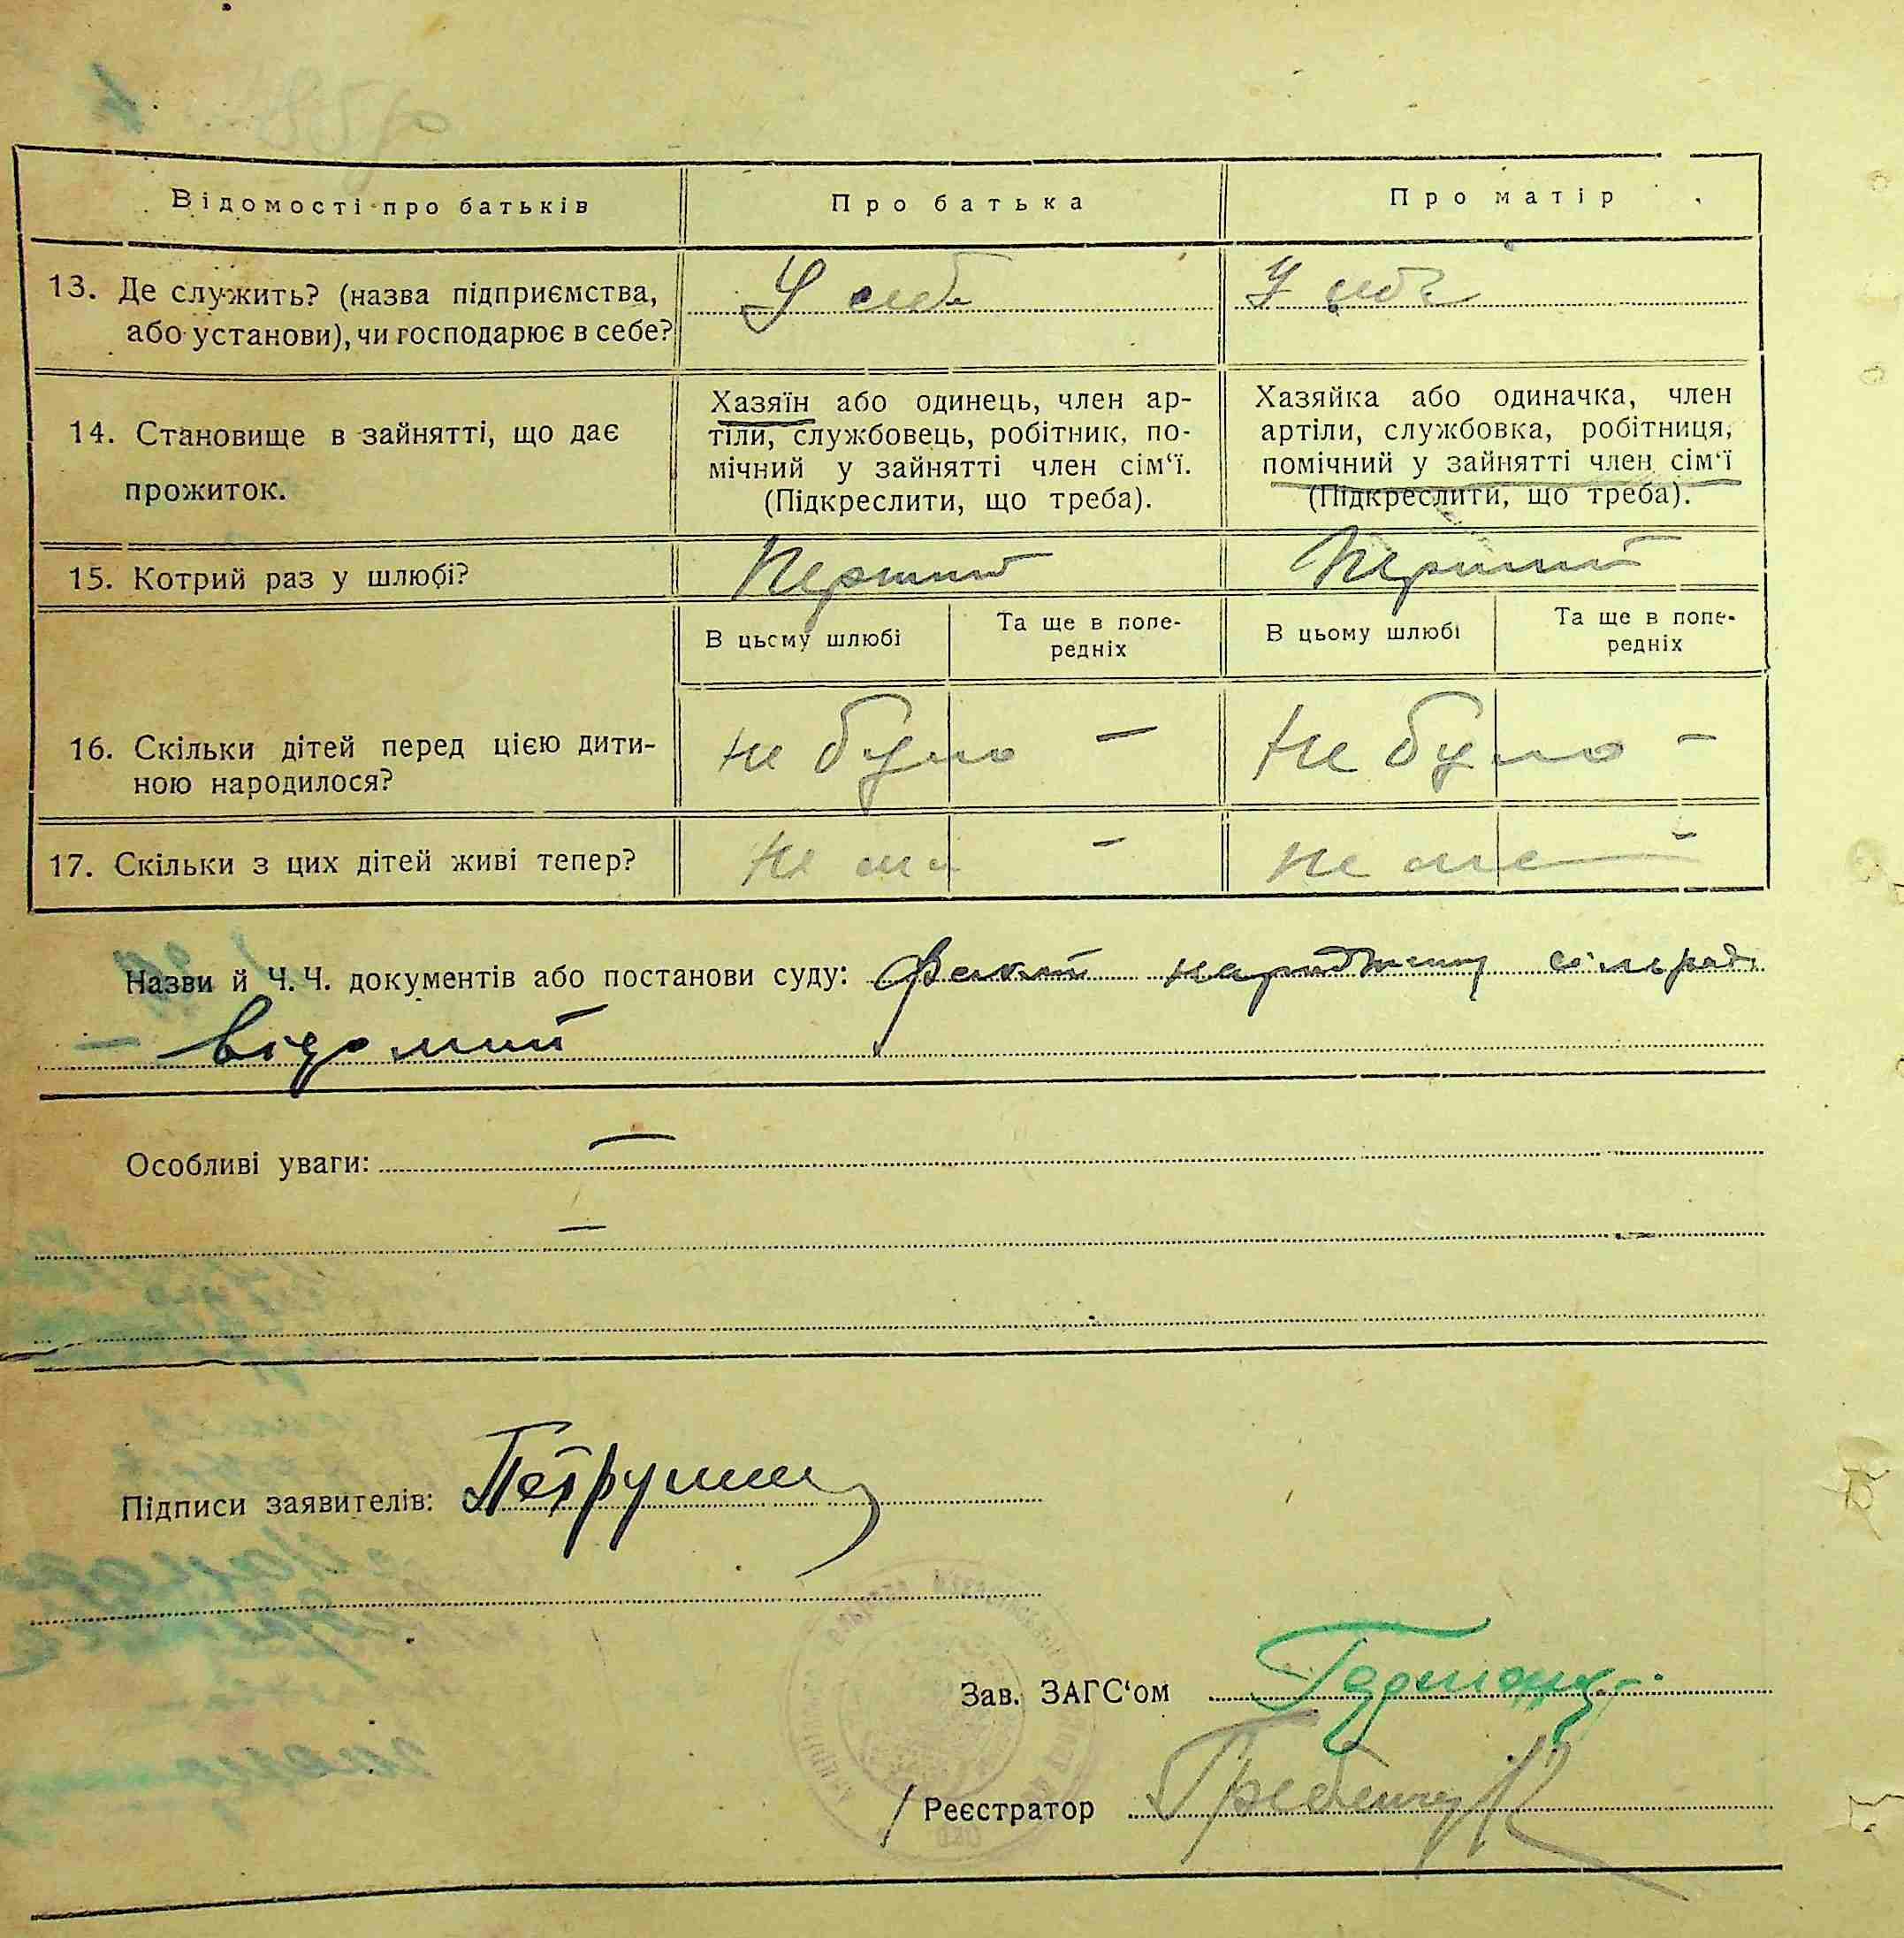 Відомості про батьків Про батька Про матір
13. Де служить? (назва підприємства, або установи), чи господарює в себе? У себе У себе
14. Становище в зайнятті, що дає прожиток.
Хазяїн або одинець, член ар-
тіли, службовець, робітник, по-
мічний у зайнятті член сім'ї.
(Підкреслити, що треба).
Хазяйка або одиначка, член
артіли, службовка, робітниця,
помічний у зайнятті член сім'ї
(Підкреслити, що треба).
15. Котрий раз у шлюбі? Перший Перший
В цьому шлюбі Та ще в попе-
редніх
В цьому шлюбі Та ще в попе-
редніх
16. Скільки дітей перед цією дити-
ною народилося? Не було — Не було —
17. Скільки з цих дітей живі тепер? Не має — Не має —
Назви й Ч. Ч. документів або постанови суду: факт сільраді
— відомий
Особливі уваги: —
—
Підписи заявителів:
Зав. ЗАГС'ом
Реєстратор Гребенчук